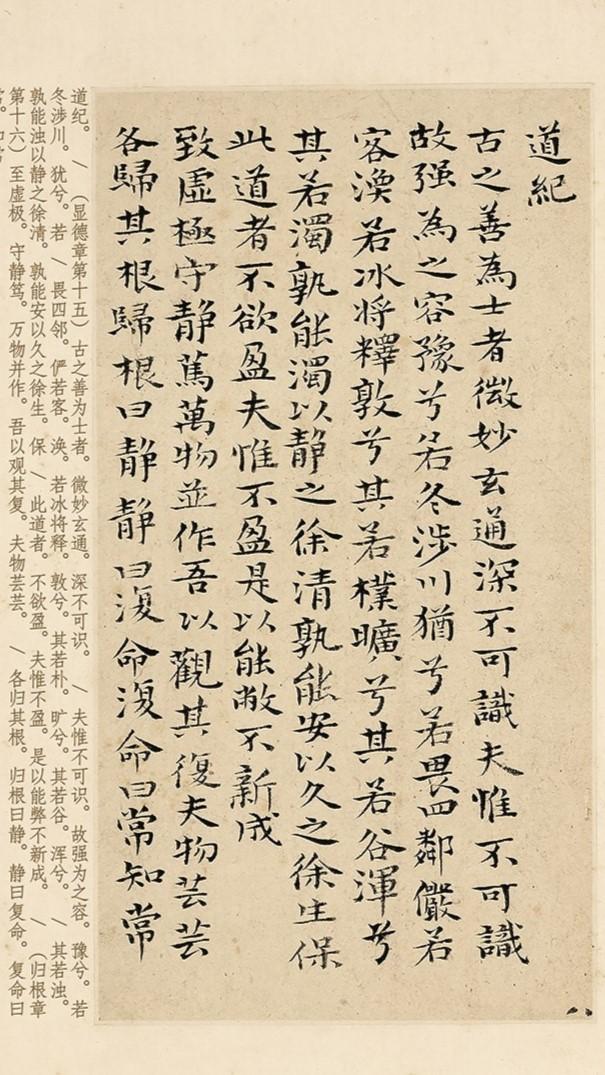 道紀
古之善為士者微妙玄通深不可識夫惟不可識
故强為之容豫兮若冬涉川猶兮若畏四鄰儼若
客渙若冰将釋敦兮其若樸曠兮其若谷渾兮
其若濁孰能濁以静之徐清孰能安以久之徐生保
此道者不欲盈夫惟不盈是以能敝不新成
致虛極守静篤萬物並作吾以觀其復夫物芸芸
各歸其根歸根曰静静曰復命復命曰常知常
道纪。 / （显德章第十五）古之善为士者。微妙玄通。深不可识。 / 夫惟不可识。故强为之容。豫兮。若
冬涉川。犹兮。若 / 畏四邻。俨若客。涣。若冰将释。敦兮。其若朴。旷兮。其若谷。浑兮。 / 其若浊。
孰能浊以静之徐清。孰能安以久之徐生。保 / 此道者。不欲盈。夫惟不盈。是以能弊不新成。 / （归根章
第十六）至虚极。守静笃。万物并作。吾以观其复。夫物芸芸。 / 各归其根。归根曰静。静曰复命。复命曰